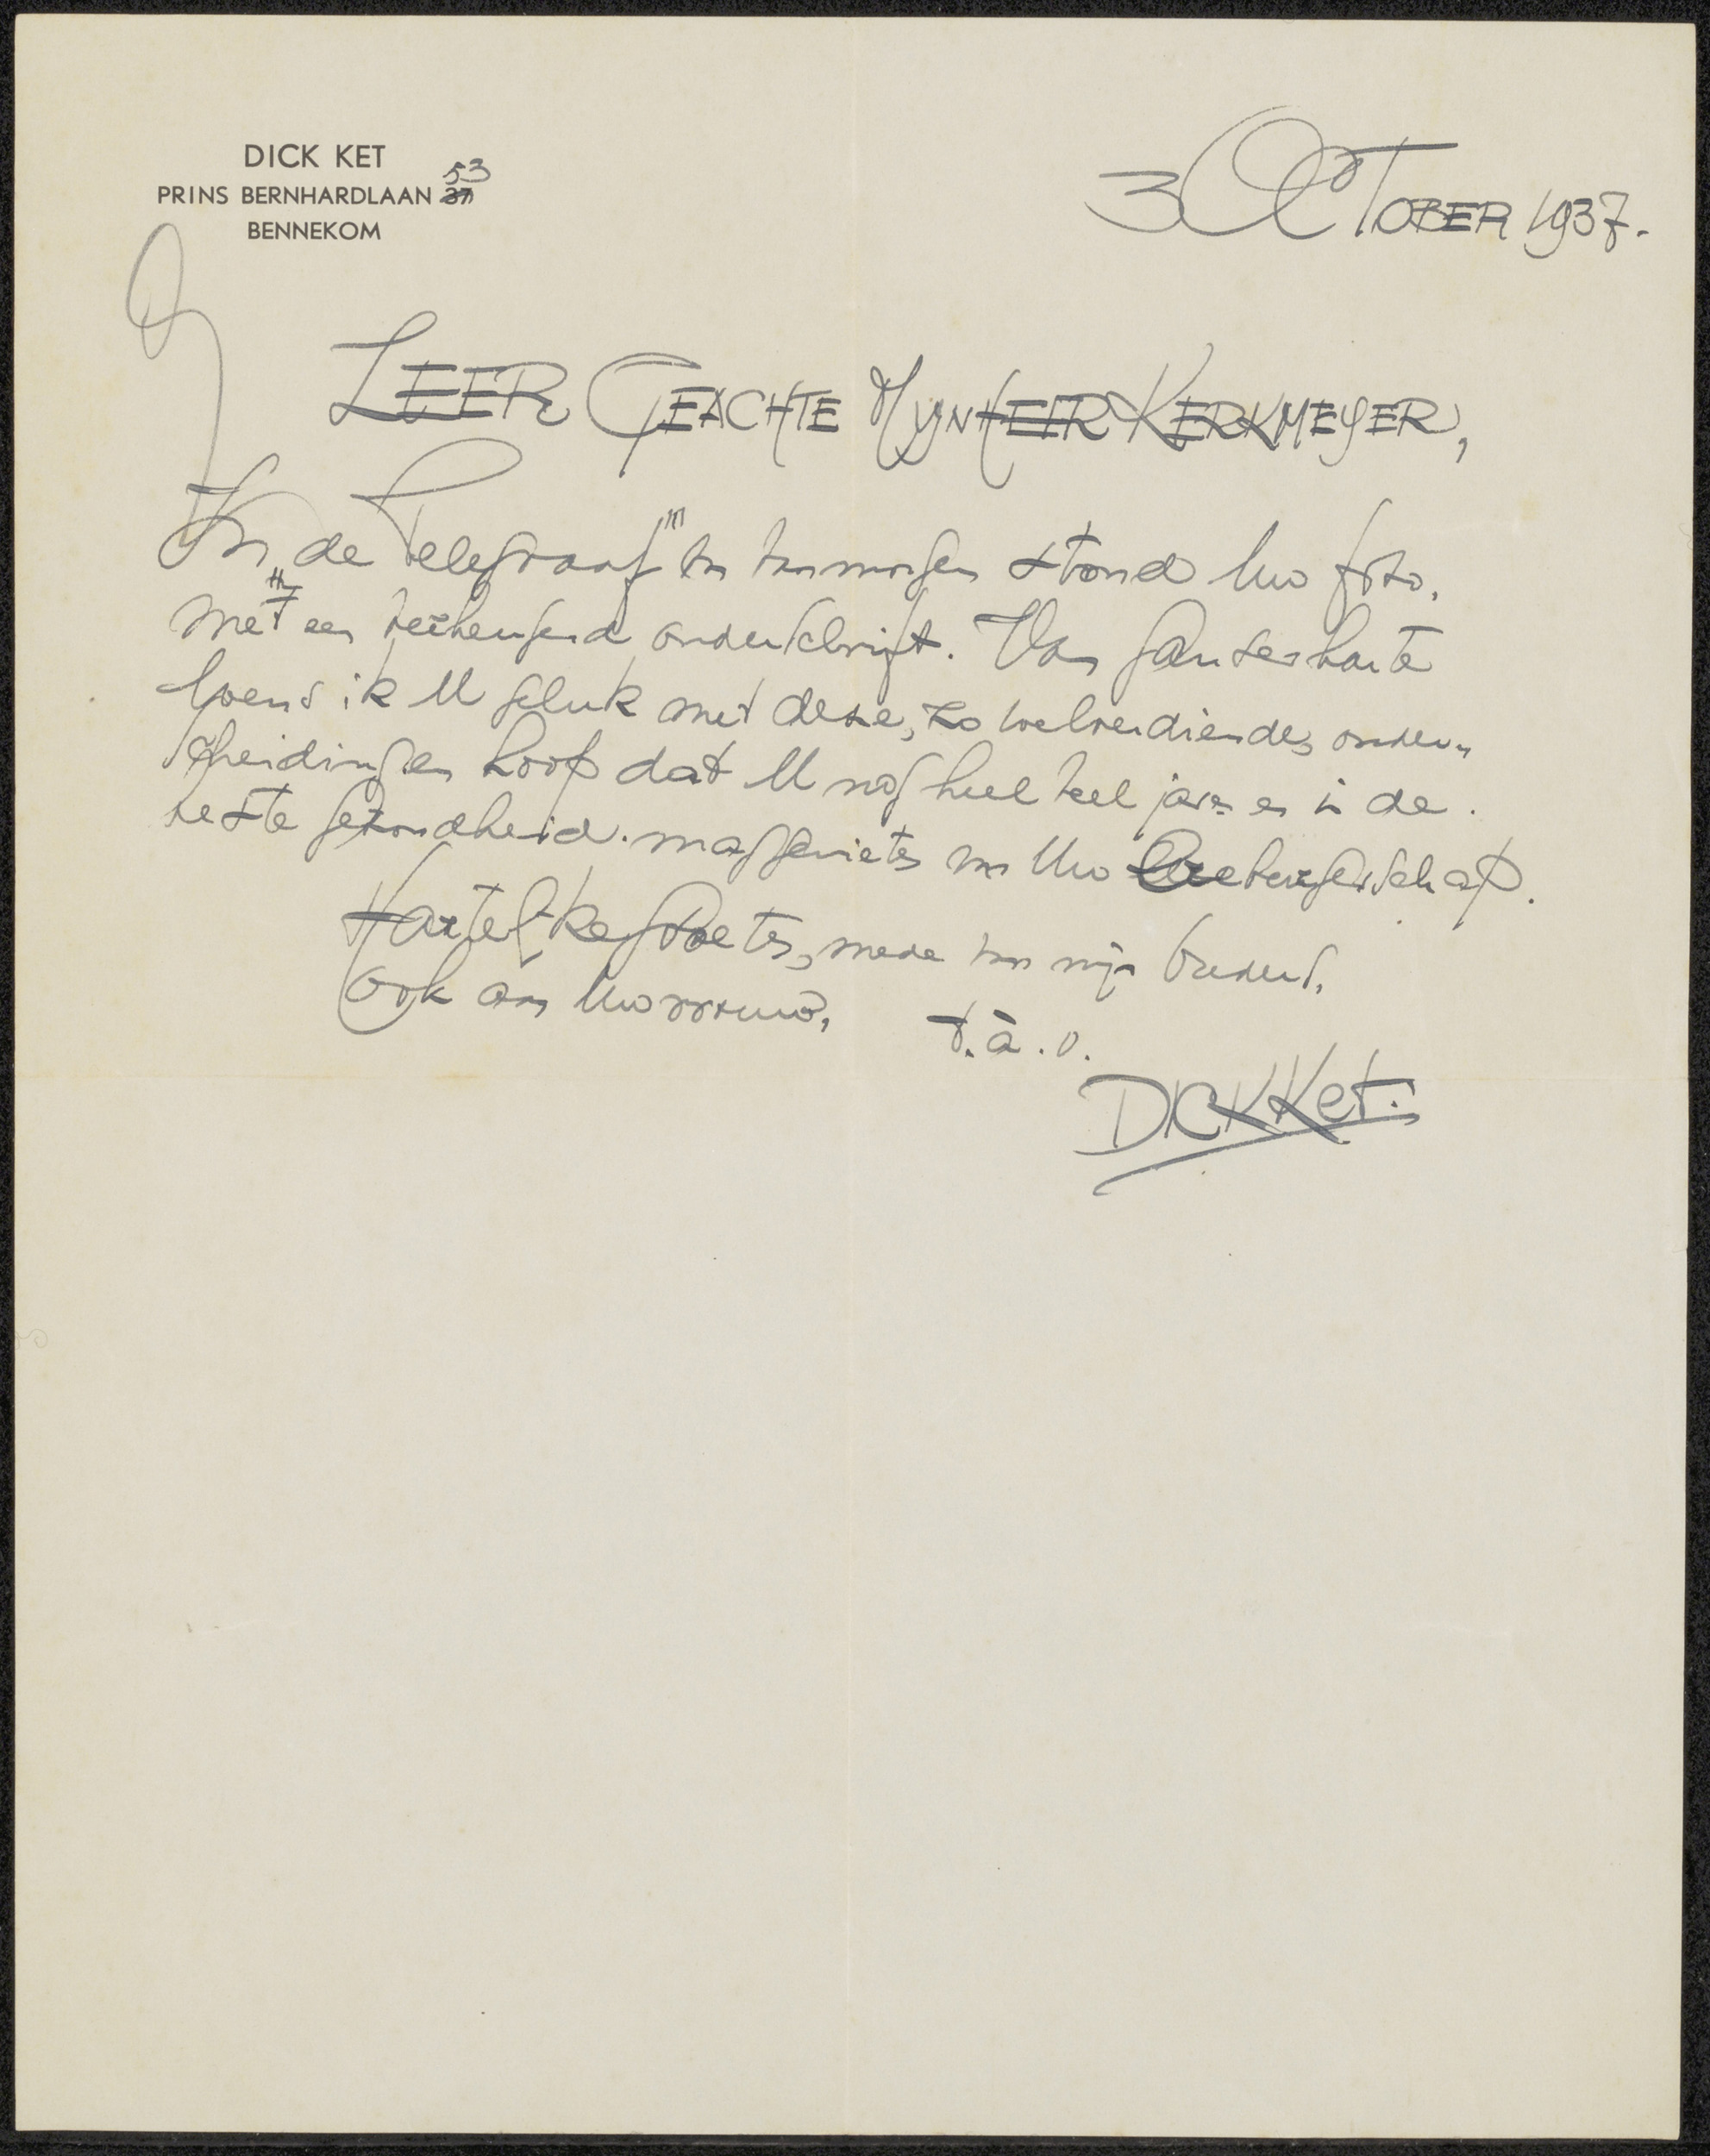 DICK KET
PRINS BERNHARDLAAN 37 53
BENNEKOM
3 OCTOBER 1937.
ZEER GEACHTE MYNHEER KERKMEYER,
In de "Telegraaf" van vanmorgen stond Uw foto,
met een onderschrift. Van ganser harte
wens ik U geluk met deze, zo welverdiende, onder-
scheiding en hoop dat U nog heel veel jaren en in de
beste gezondheid mag genieten van Uw Ereburgerschap.
Hartelijke groeten, mede van mijn ouders,
ook aan Uw vrouw,
t. à. v.
DICK KET.